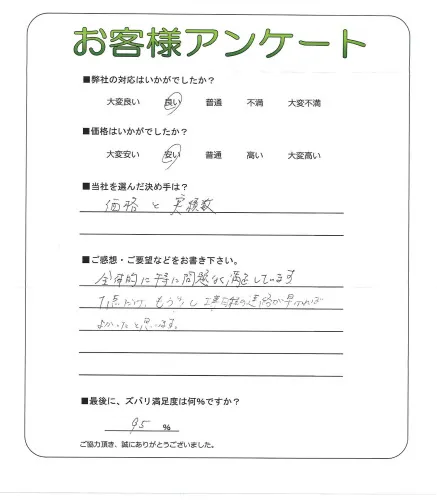 お客様アンケート
■弊社の対応はいかがでしたか？
大変良い 良い 普通 不満 大変不満
■価格はいかがでしたか？
大変安い 安い 普通 高い 大変高い
■当社を選んだ決め手は？
価格と実績数
■ご感想・ご要望などをお書き下さい。
全体的に特に問題なく満足しています
1点だけ、もう少し工事日程の連絡が早ければ
よかったと思います。
■最後に、ズバリ満足度は何％ですか？
95 ％
ご協力頂き、誠にありがとうございました。